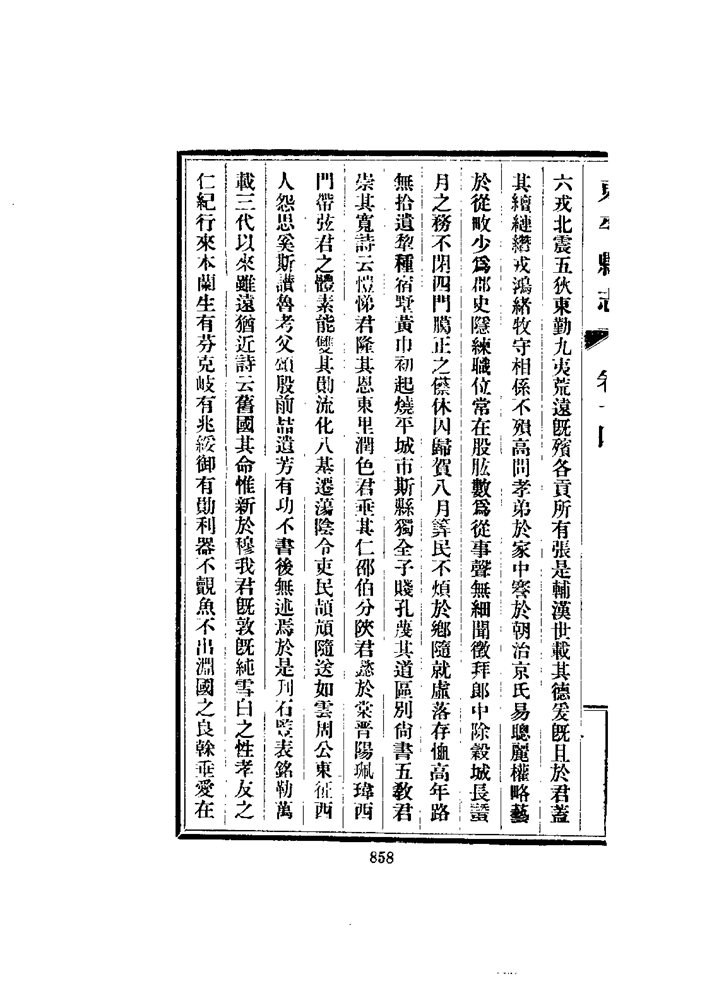 東平縣志 卷十四
六戎北震五狄東勤九夷荒遠旣殯各貢所有張是輔漢世載其德爰旣且於君蓋
其纘縺纘戎鴻緒牧守相係不殞高問孝弟於家中謇於朝治京氏易聰麗權略藝
於從畋少爲郡吏隱練職位常在股肱數爲從事聲無細聞徵拜郞中除穀城長蠶
月之務不閉四門臈正之僚休囚歸賀八月筭民不煩於鄕隨就虛落存恤高年路
無拾遺犂種宿墅黃巾初起燒平城市斯縣獨全子賤孔蔑其道區別尙書五敎君
崇其寬詩云愷悌君隆其恩東里潤色君垂其仁邵伯分陝君懿於棠晋陽珮瑋西
門帶弦君之體素能雙其勛流化八基遷蕩陰令吏民頡頏隨送如雲周公東征西
人怨思奚斯讚魯考父頌殷前喆遺芳有功不書後無述焉於是刋石豎表銘勒萬
載三代以來雖遠猶近詩云舊國其命惟新於穆我君旣敦旣純雪白之性孝友之
仁紀行來本蘭生有芬克岐有兆綏御有勛利器不覿魚不出淵國之良榦垂愛在
858